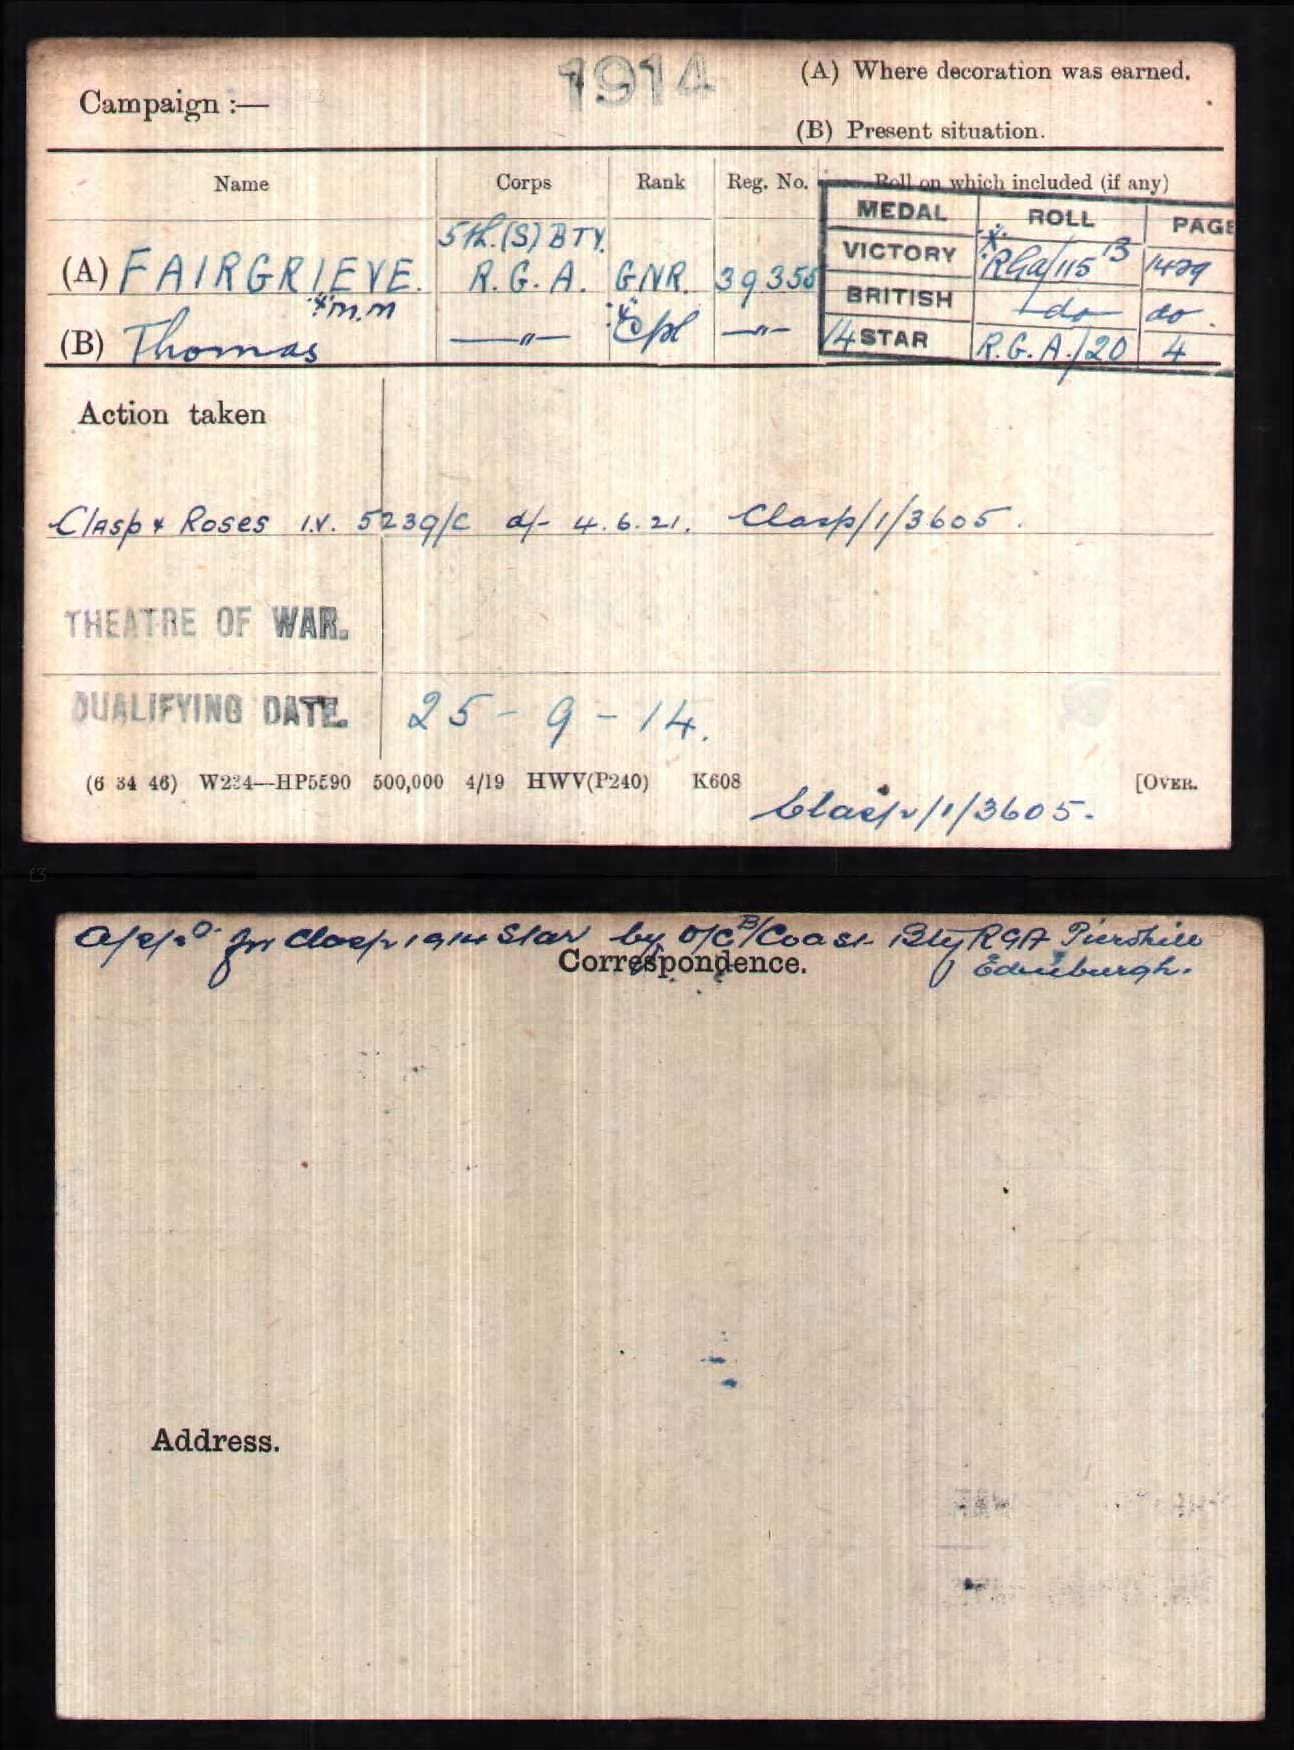 1914
(A) Where decoration was earned.
Campaign :—
(B) Present situation.
Name Corps Rank Reg. No. Roll on which included (if any)
MEDAL ROLL PAGE
5th.(S) BTY.
(A) FAIRGRIEVE. R.G.A. GNR. 39355
VICTORY RGA/115 B 1429
*M.M
BRITISH do do.
(B) Thomas —"— Cpl —"—
14 STAR R.G.A./20 4
Action taken
Clasp & Roses I.V. 5239/C d/- 4.6.21. Clasp/1/3605.
THEATRE OF WAR.
QUALIFYING DATE. 25-9-14.
(6 34 46) W234—HP5590 500,000 4/19 HWV(P240) K608 [OVER.
Clasp/1/3605.
for Clasp 1914 Star by O/C B/Coast Bty RGA Piershill
Edinburgh.
Correspondence.
Address.